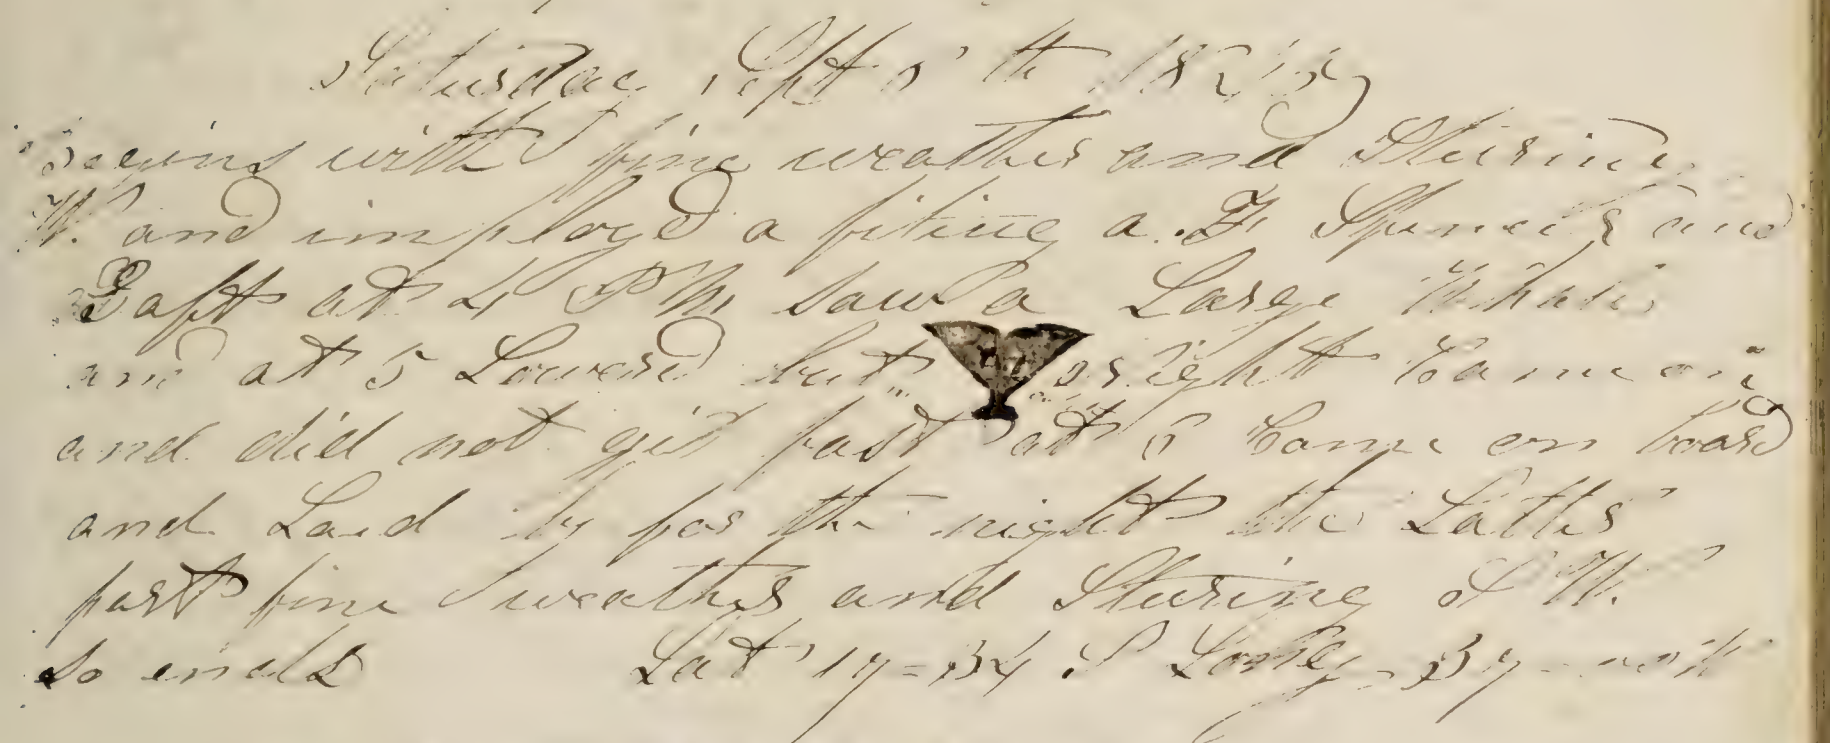 Saturday Sept th 18
Begins with fine weather and Sturing
W. and imployd a fiting a . F Spencer and
Gaft at 4 P M saw a Large Whale
and at 5 Lowerd but Came on
and did not git fast at 6 Came on board
and Laid by for the night the Latter
part fine weather and Sturing S W.
So ends Lat 17=34 S Long = 37